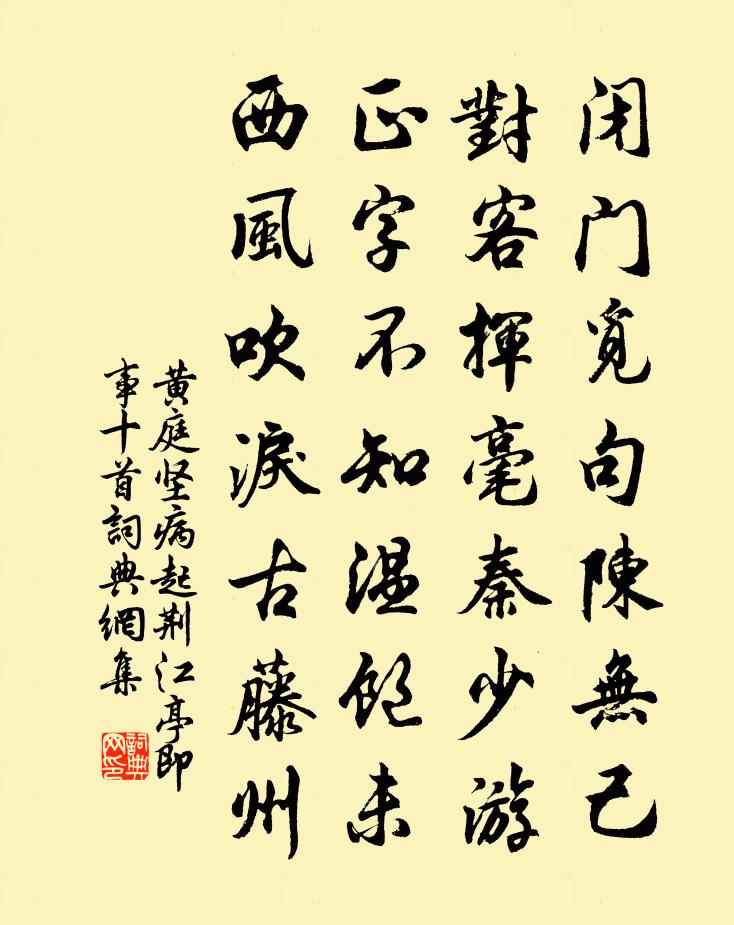 闭门觅句陳無己
對客揮毫秦少游
正字不知温飽未
西風吹淚古藤州
黄庭坚病起荆江亭即
事十首詞典網集
詞典
网印